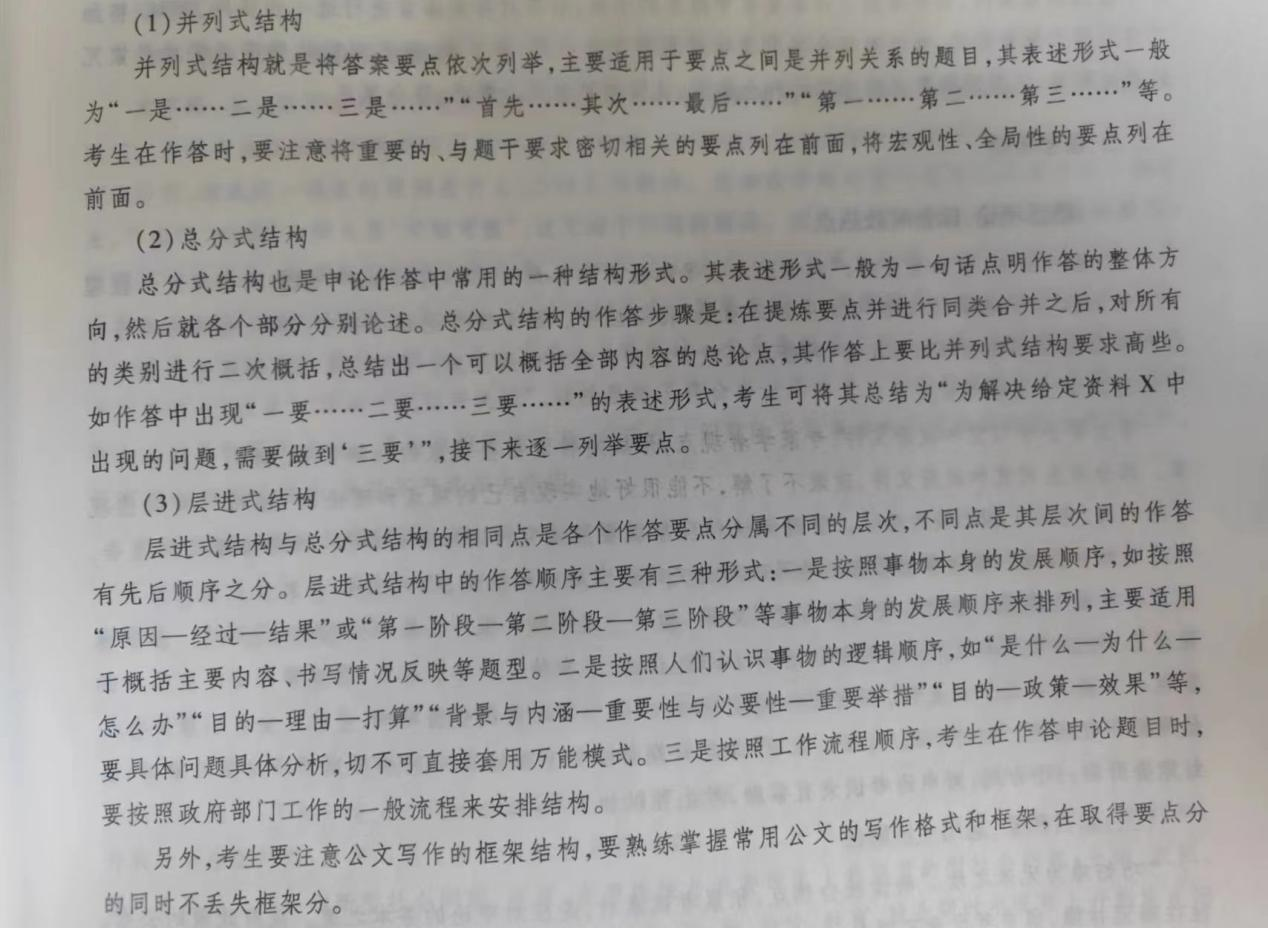 (1)并列式结构
并列式结构就是将答案要点依次列举,主要适用于要点之间是并列关系的题目,其表述形式一般
为“一是……二是……三是……”“首先……其次……最后……”“第一……第二……第三……”等。
考生在作答时,要注意将重要的、与题干要求密切相关的要点列在前面,将宏观性、全局性的要点列在
前面。
(2)总分式结构
总分式结构也是申论作答中常用的一种结构形式。其表述形式一般为一句话点明作答的整体方
向,然后就各个部分分别论述。总分式结构的作答步骤是:在提炼要点并进行同类合并之后,对所有
的类别进行二次概括,总结出一个可以概括全部内容的总论点,其作答上要比并列式结构要求高些。
如作答中出现“一要……二要……三要……”的表述形式,考生可将其总结为“为解决给定资料X中
出现的问题,需要做到‘三要’”,接下来逐一列举要点。
(3)层进式结构
层进式结构与总分式结构的相同点是各个作答要点分属不同的层次,不同点是其层次间的作答
有先后顺序之分。层进式结构中的作答顺序主要有三种形式:一是按照事物本身的发展顺序,如按照
“原因—经过—结果”或“第一阶段—第二阶段—第三阶段”等事物本身的发展顺序来排列,主要适用
于概括主要内容、书写情况反映等题型。二是按照人们认识事物的逻辑顺序,如“是什么—为什么—
怎么办”“目的—理由—打算”“背景与内涵—重要性与必要性—重要举措”“目的—政策—效果”等,
要具体问题具体分析,切不可直接套用万能模式。三是按照工作流程顺序,考生在作答申论题目时,
要按照政府部门工作的一般流程来安排结构。
另外,考生要注意公文写作的框架结构,要熟练掌握常用公文的写作格式和框架,在取得要点分
的同时不丢失框架分。